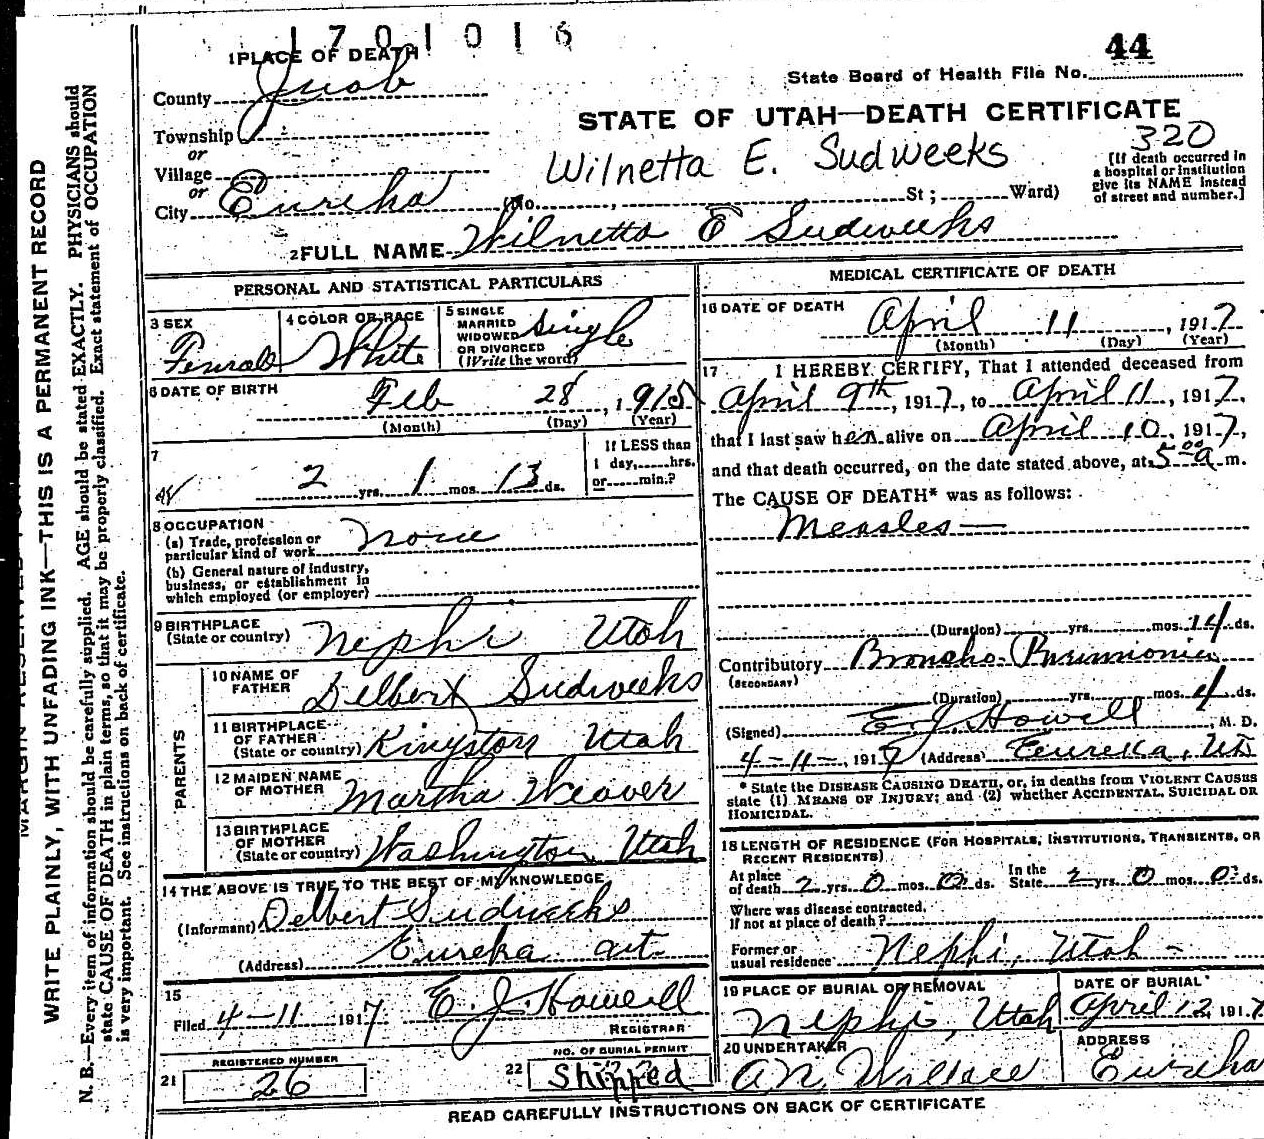 1701016
1 PLACE OF DEATH
44
State Board of Health File No.
County Juab
STATE OF UTAH—DEATH CERTIFICATE
Township
or
320
Wilnetta E. Sudweeks
Village
or
(If death occurred in
a hospital or institution
give its NAME instead
of street and number.]
City Eureka (No. , St ; Ward)
2 FULL NAME Wilnetta E Sudweeks
PERSONAL AND STATISTICAL PARTICULARS
3 SEX
Female
4 COLOR OR RACE
White
5 SINGLE
MARRIED
WIDOWED
OR DIVORCED
(Write the word)
Single
6 DATE OF BIRTH
Feb 28, 1915
(Month) (Day) (Year)
7
2 yrs. 1 mos. 13 ds.
If LESS than
1 day, hrs.
or min.?
8 OCCUPATION
(a) Trade, profession or
particular kind of work None
(b) General nature of industry,
business, or establishment in
which employed (or employer)
9 BIRTHPLACE
(State or country) Nephi Utah
PARENTS
10 NAME OF
FATHER Delbert Sudweeks
11 BIRTHPLACE
OF FATHER
(State or country) Kingston Utah
12 MAIDEN NAME
OF MOTHER Martha Weaver
13 BIRTHPLACE
OF MOTHER
(State or country) Washington, Utah
14 THE ABOVE IS TRUE TO THE BEST OF MY KNOWLEDGE
(Informant) Delbert Sudweeks
(Address) Eureka Ut
15
Filed 4-11 1917 E. J. Howell
REGISTRAR
REGISTERED NUMBER
21 26
NO. OF BURIAL PERMIT
22 Shipped
MEDICAL CERTIFICATE OF DEATH
16 DATE OF DEATH
April 11, 1917
(Month) (Day) (Year)
17 I HEREBY CERTIFY, That I attended deceased from
April 9th, 1917, to April 11, 1917,
that I last saw her alive on April 10, 1917,
and that death occurred, on the date stated above, at 5 00 a m.
The CAUSE OF DEATH* was as follows:
Measles—
(Duration) yrs. mos. 14 ds.
Contributory Broncho-Pneumonia
(SECONDARY)
(Duration) yrs. mos. 4 ds.
(Signed) E. J. Howell, M. D.
4-11-, 1917 (Address) Eureka, Ut
* State the DISEASE CAUSING DEATH, or, in deaths from VIOLENT CAUSES
state (1) MEANS OF INJURY; and (2) whether ACCIDENTAL, SUICIDAL OR
HOMICIDAL.
18 LENGTH OF RESIDENCE (FOR HOSPITALS, INSTITUTIONS, TRANSIENTS, OR
RECENT RESIDENTS)
At place
of death 2 yrs. 0 mos. 0 ds.
In the
State 2 yrs. 0 mos. 0 ds.
Where was disease contracted,
if not at place of death?
Former or
usual residence Nephi, Utah -
19 PLACE OF BURIAL OR REMOVAL
Nephi, Utah
DATE OF BURIAL
April 12, 1917
20 UNDERTAKER
A N Wallace
ADDRESS
Eureka
READ CAREFULLY INSTRUCTIONS ON BACK OF CERTIFICATE
WRITE PLAINLY, WITH UNFADING INK—THIS IS A PERMANENT RECORD
N. B.—Every item of information should be carefully supplied. AGE should be stated EXACTLY. PHYSICIANS should
state CAUSE OF DEATH in plain terms, so that it may be properly classified. Exact statement of OCCUPATION
is very important. See instructions on back of certificate.